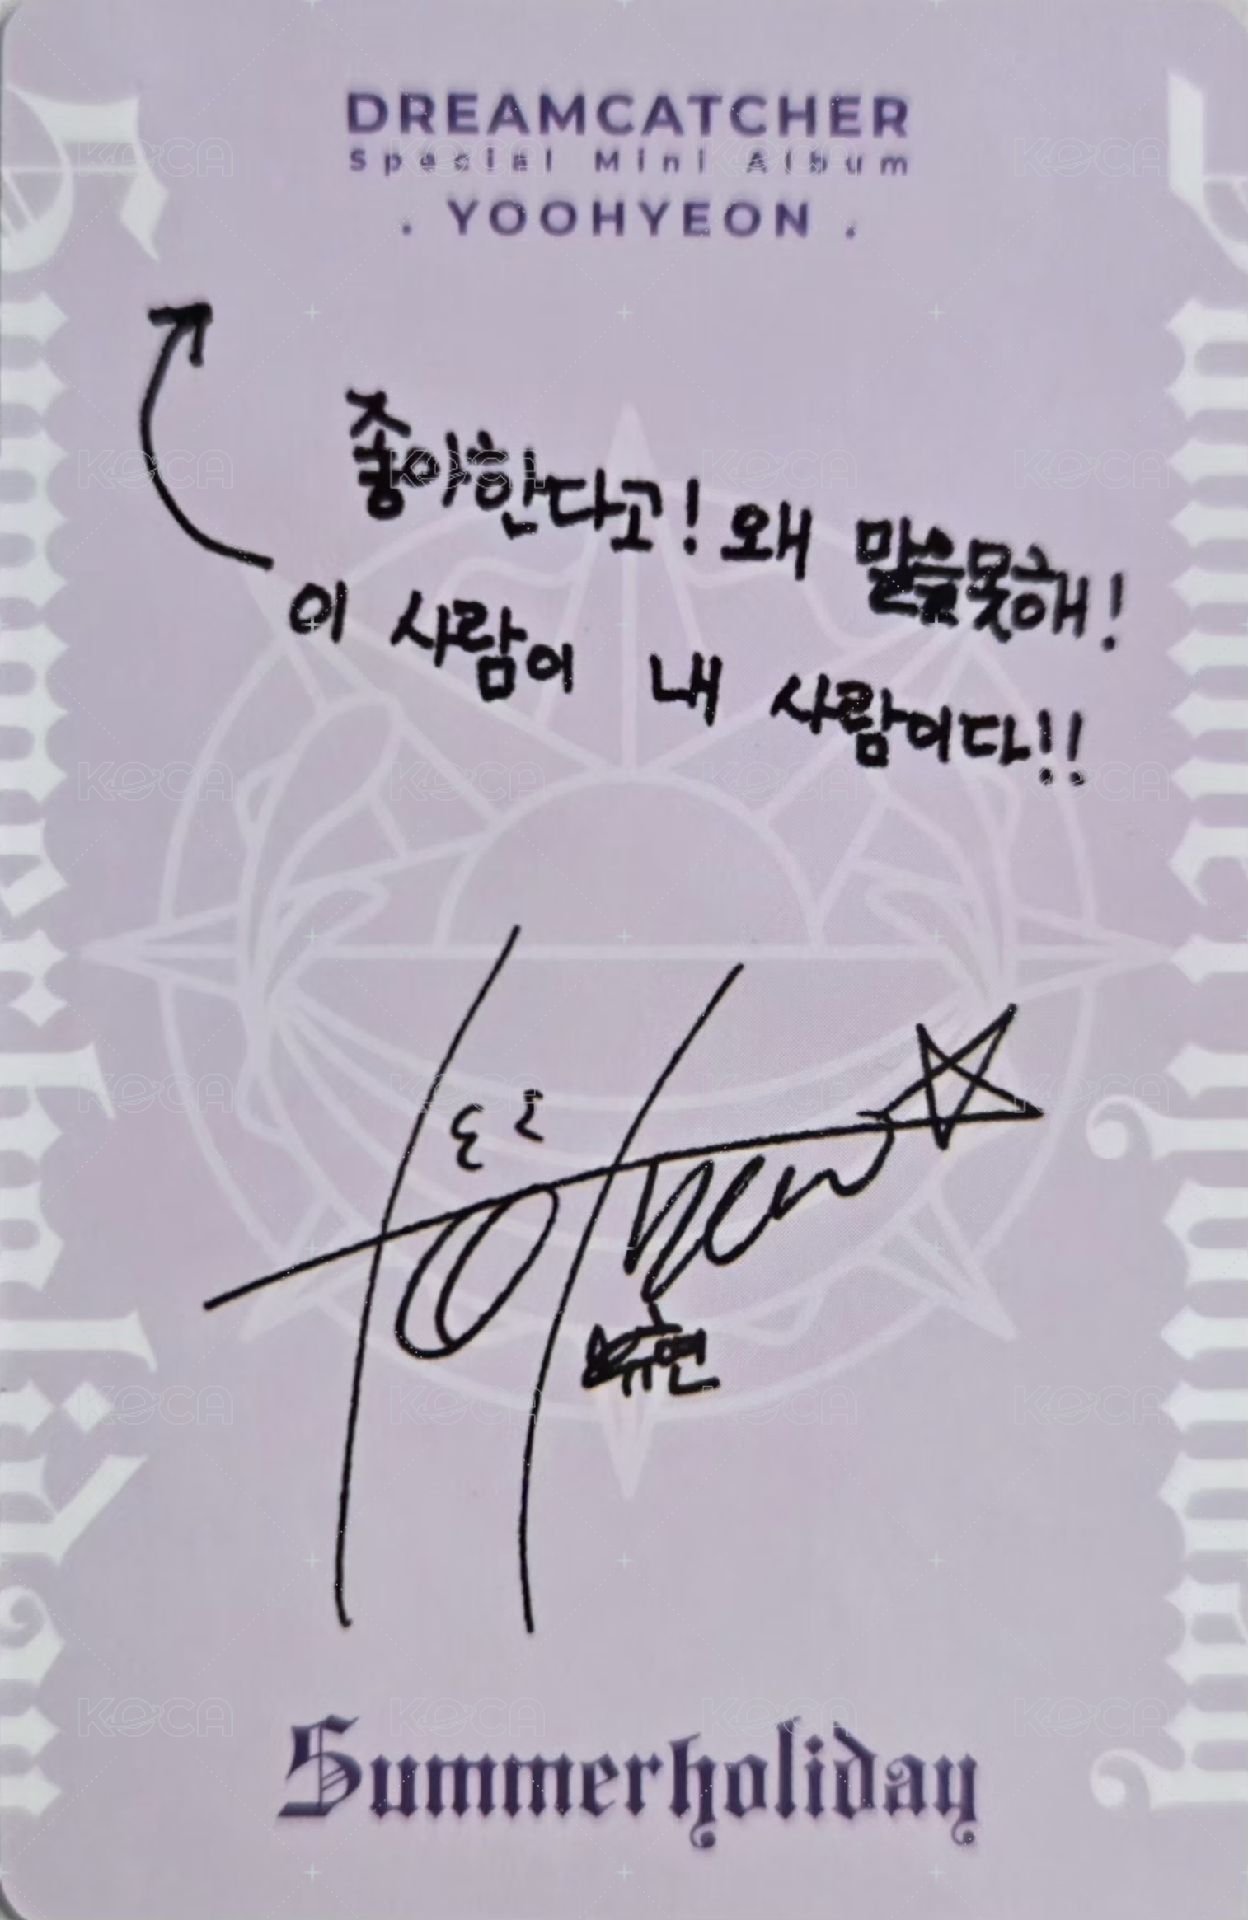 DREAMCATCHER
Special Mini Album
. YOOHYEON .
좋아한다고! 왜 말을못해!
이 사람이 내 사람이다!!
유현
Summerholiday
Summerholiday
Summerholiday